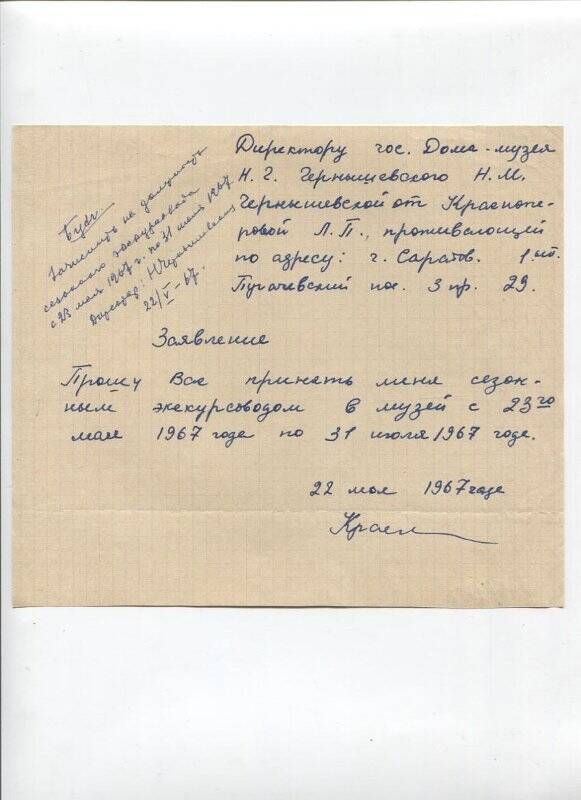 Директору гос. Дома-музея
Н. Г. Чернышевского Н. М.
Чернышевской от Краснопе-
ровой Л. П., проживающей
по адресу: г. Саратов.
Пугачевский пос. 3 пр. 29.
Зачислить на должность
сезонного экскурсовода
с 23 мая 1967 г. по 31 июля 1967
Директор: Н Чернышевская
22/V-67.
Заявление
Прошу Вас принять меня сезон-
ным экскурсоводом в музей с 23го
мая 1967 года по 31 июля 1967 года.
22 мая 1967 года